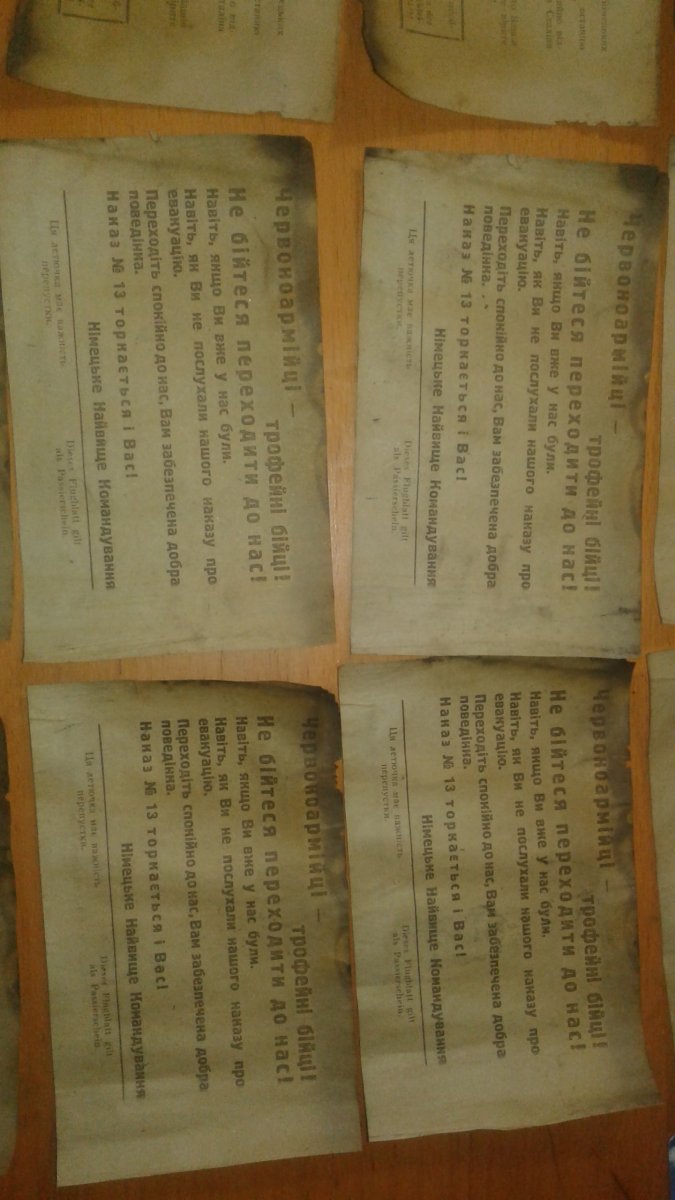 Червоноармійці –
трофейні бійці!
Не бійтеся переходити до нас!
Навіть, якщо Ви вже у нас були.
Навіть, як Ви не послухали нашого наказу про
евакуацію.
Переходіть спокійно до нас, Вам забезпечена добра
поведінка.
Наказ № 13 торкається і Вас!
Німецьке Найвище Командування
Ця летючка має важність
перепустки.
Dieses Flugblatt gilt
als Passierschein.
Червоноармійці –
трофейні бійці!
Не бійтеся переходити до нас!
Навіть, якщо Ви вже у нас були.
Навіть, як Ви не послухали нашого наказу про
евакуацію.
Переходіть спокійно до нас, Вам забезпечена добра
поведінка.
Наказ № 13 торкається і Вас!
Німецьке Найвище Командування
Ця летючка має важність
перепустки.
Dieses Flugblatt gilt
als Passierschein.
Червоноармійці –
трофейні бійці!
Не бійтеся переходити до нас!
Навіть, якщо Ви вже у нас були.
Навіть, як Ви не послухали нашого наказу про
евакуацію.
Переходіть спокійно до нас, Вам забезпечена добра
поведінка.
Наказ № 13 торкається і Вас!
Німецьке Найвище Командування
Ця летючка має важність
перепустки.
Dieses Flugblatt gilt
als Passierschein.
Червоноармійці –
трофейні бійці!
Не бійтеся переходити до нас!
Навіть, якщо Ви вже у нас були.
Навіть, як Ви не послухали нашого наказу про
евакуацію.
Переходіть спокійно до нас, Вам забезпечена добра
поведінка.
Наказ № 13 торкається і Вас!
Німецьке Найвище Командування
Ця летючка має важність
перепустки.
Dieses Flugblatt gilt
als Passierschein.